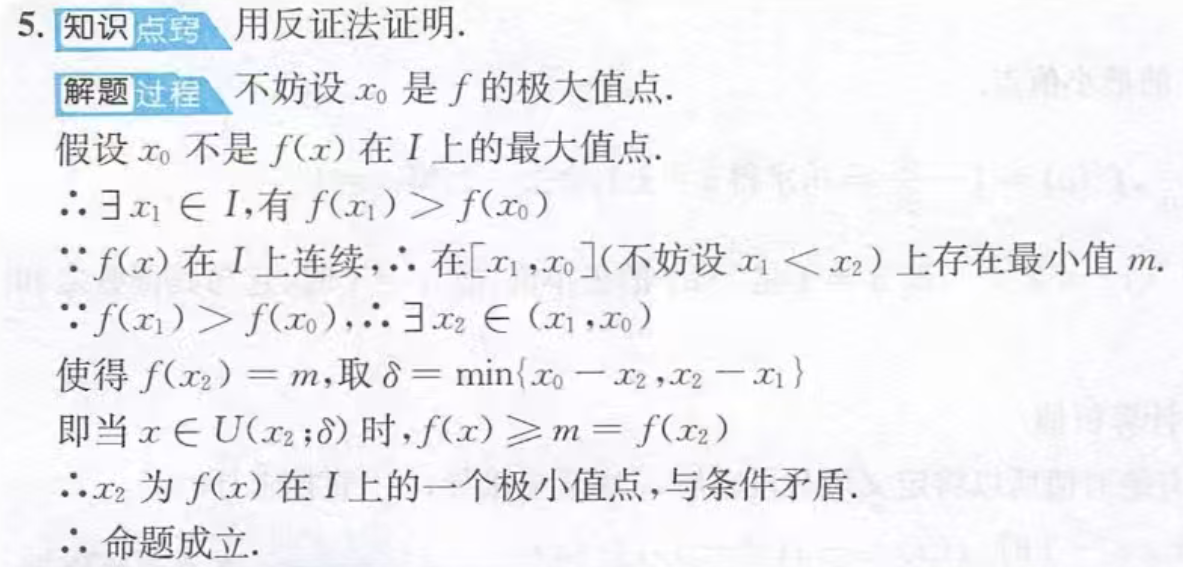 5. 知识点窍 用反证法证明.
解题过程 不妨设 x₀ 是 f 的极大值点.
假设 x₀ 不是 f(x) 在 I 上的最大值点.
∴∃ x₁ ∈ I,有 f(x₁) > f(x₀)
∵ f(x) 在 I 上连续,∴ 在[x₁,x₀](不妨设 x₁ < x₂) 上存在最小值 m.
∵ f(x₁) > f(x₀),∴ ∃ x₂ ∈ (x₁,x₀)
使得 f(x₂) = m,取 δ = min{x₀ − x₂,x₂ − x₁}
即当 x ∈ U(x₂;δ) 时,f(x) ⩾ m = f(x₂)
∴x₂ 为 f(x) 在 I 上的一个极小值点,与条件矛盾.
∴ 命题成立.